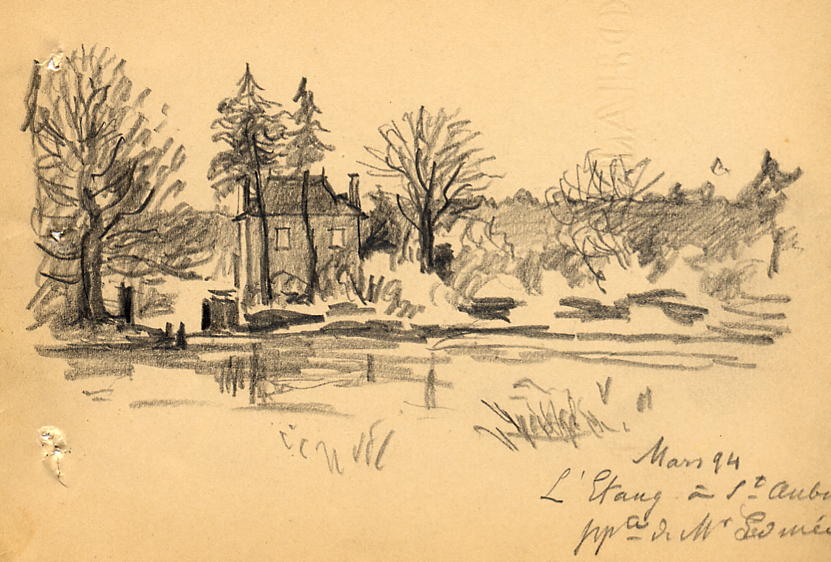 Mars 94
L'Etang à St Aubi
ppté de Mr